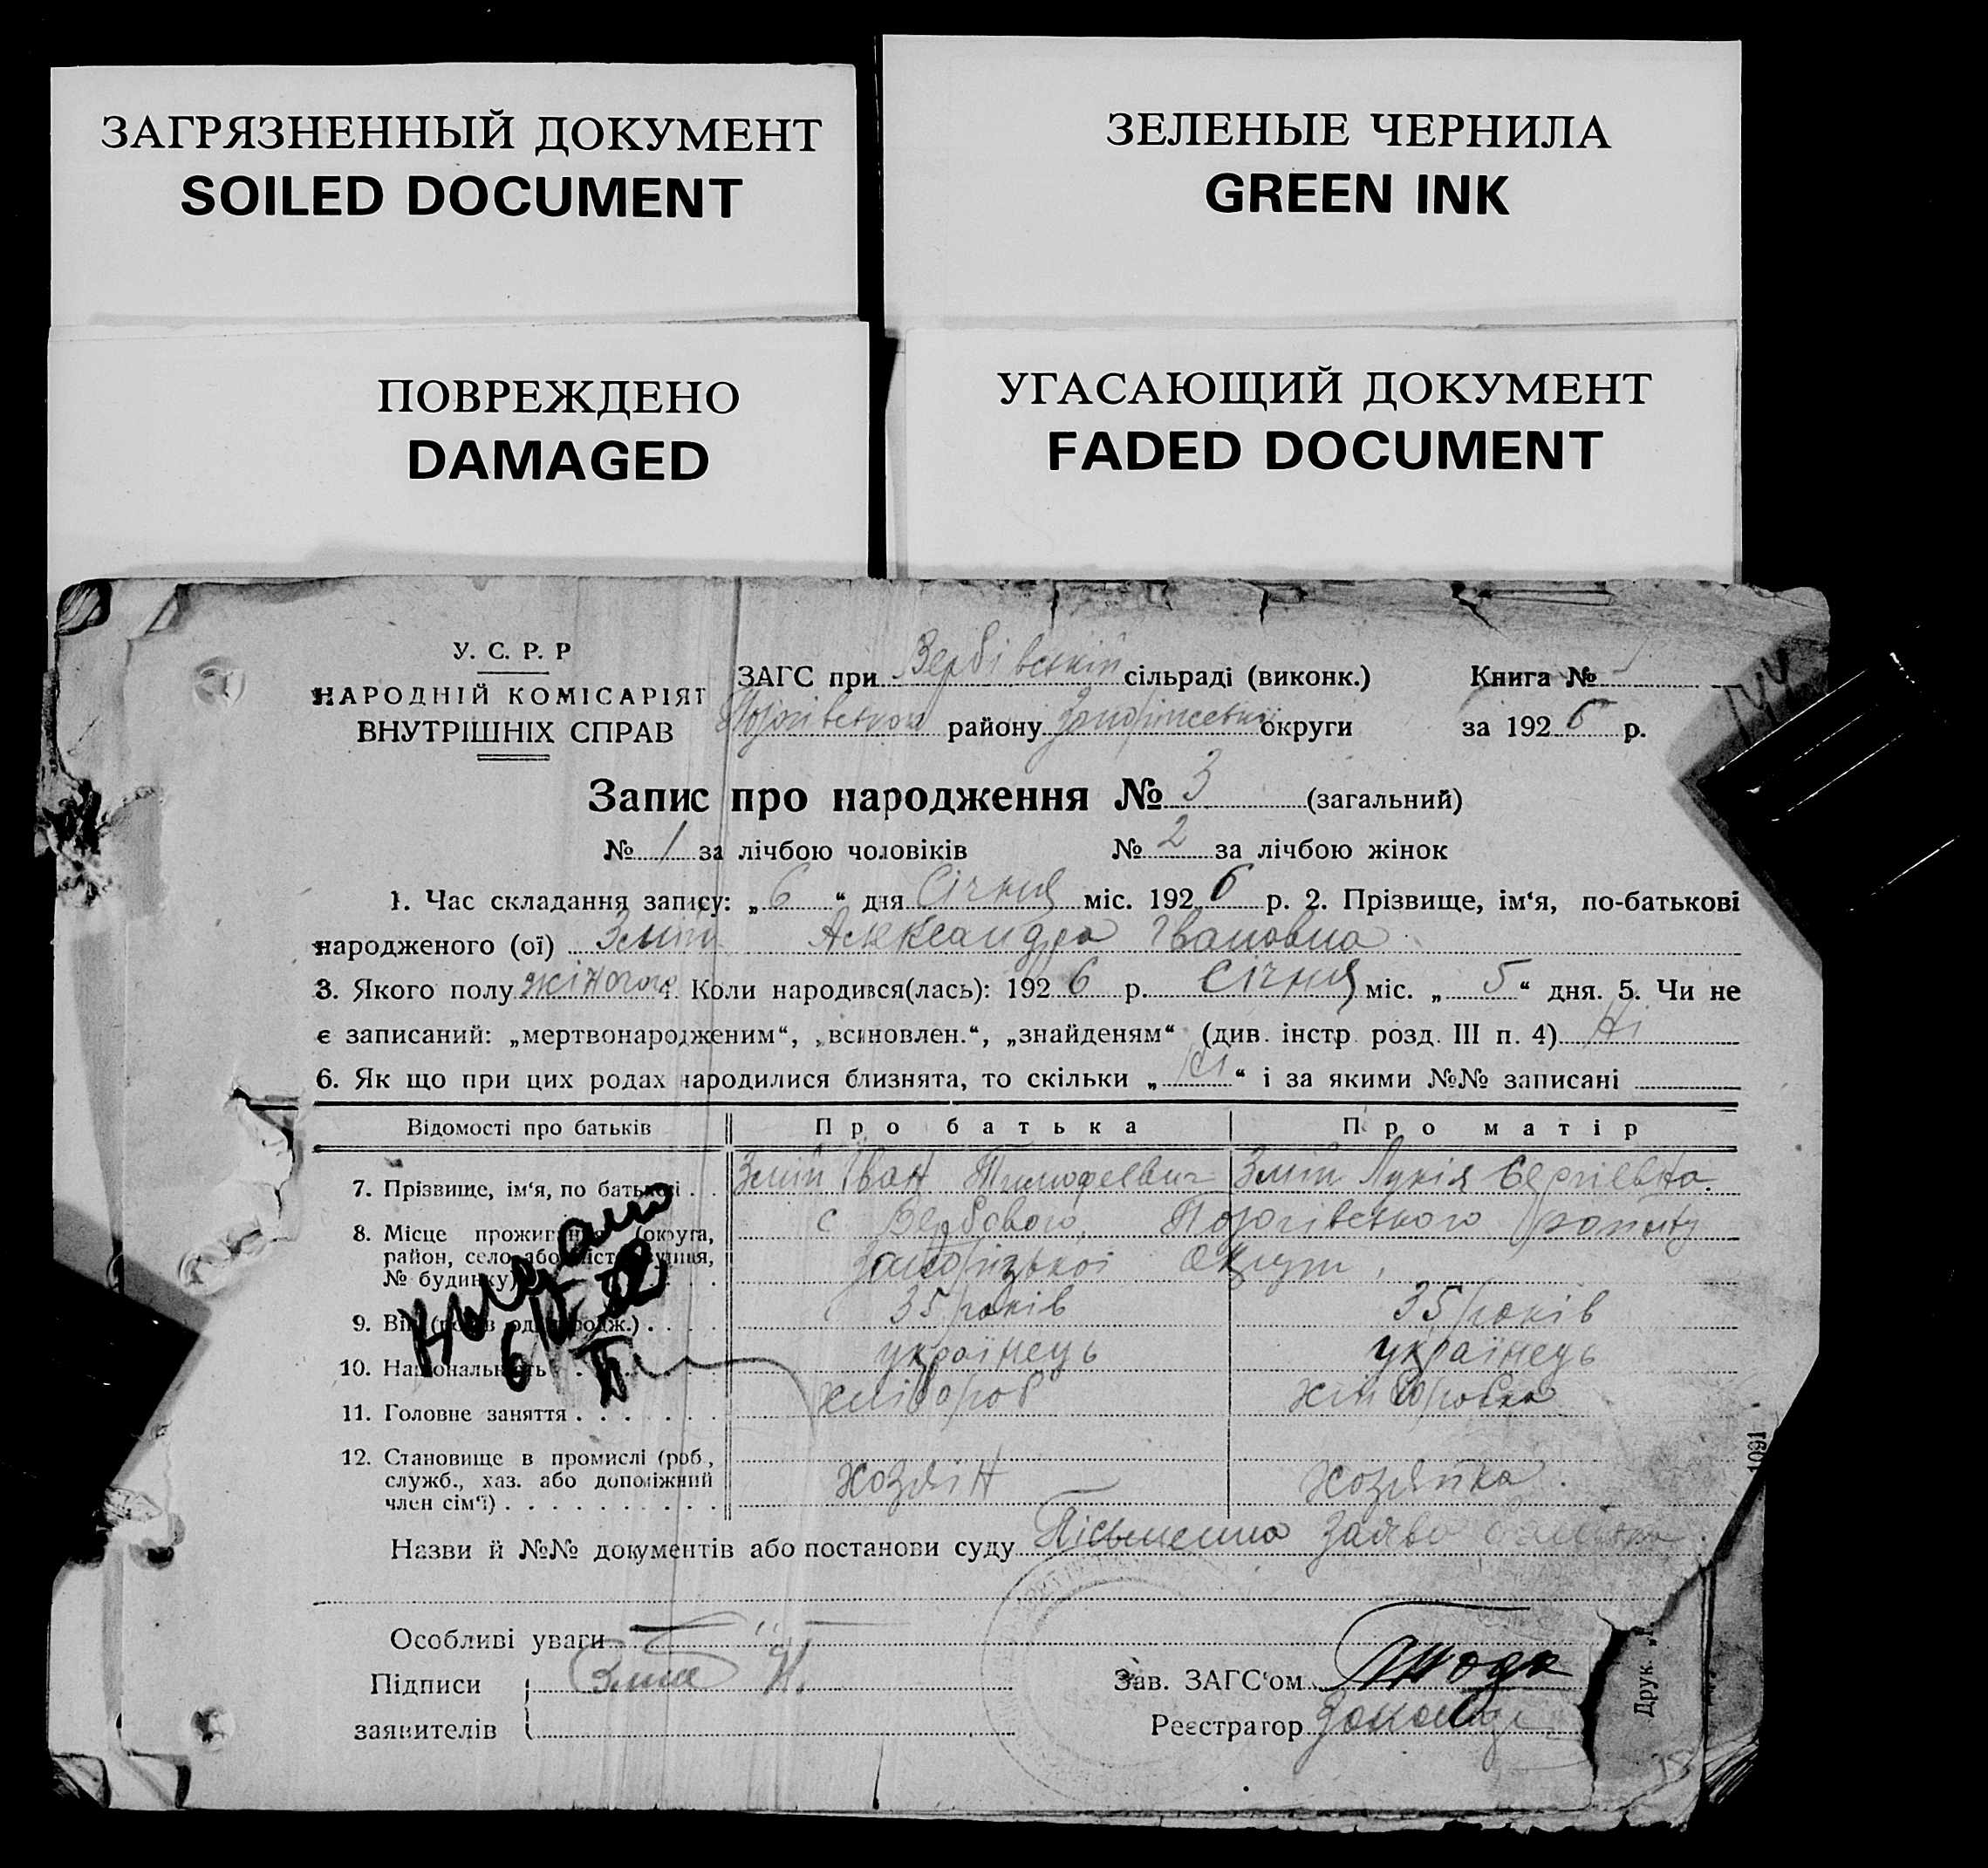 ЗАГРЯЗНЕННЫЙ ДОКУМЕНТ
SOILED DOCUMENT
ЗЕЛЕНЫЕ ЧЕРНИЛА
GREEN INK
ПОВРЕЖДЕНО
DAMAGED
УГАСАЮЩИЙ ДОКУМЕНТ
FADED DOCUMENT
У. С. Р. Р
НАРОДНІЙ КОМІСАРІЯТ
ВНУТРІШНІХ СПРАВ
ЗАГС при Вербівській сільраді (виконк.)
Пологівського району Запоріжської округи
Книга №
за 1926 р.
144
Запис про народження № 3 (загальний)
№ 1 за лічбою чоловіків № 2 за лічбою жінок
1. Час складання запису: „6“ дня Січня міс. 1926 р. 2. Прізвище, ім‘я, по-батькові
народженого (ої) Змій Александра Івановна
3. Якого полу жіночого 4. Коли народився(лась): 1926 р. Січня міс. „5“ дня. 5. Чи не
є записаний: „мертвонародженим“, „всиновлен.“, „знайденям“ (див. інстр. розд. III п. 4) Ні
6. Як що при цих родах народилися близнята, то скільки „Ні“ і за якими №№ записані
Відомості про батьків Про батька Про матір
7. Прізвище, ім‘я, по батькові . . Змій Іван Тимофеевич Змій Лукія Сергіевна.
8. Місце проживання (округа, район, село або місто, вулиця, № будинку) с Вербового, Пологівського району
Запорізької Округи,
9. Вік (років од народж.) . . . . 35 років 35 років
10. Національність . . . українець українець
11. Головне заняття . . . . . . . хлібороб хліборобка
12. Становище в промислі (роб., служб., хаз. або допоміжний член сім‘ї) . . . . . . . . . . хозяїн хозяйка.
Назви й №№ документів або постанови суду Пісьменна заява батька
Особливі уваги
Підписи заявителів Змій И.
Зав. ЗАГС‘ом
Реєстратор
1091
Друк. „